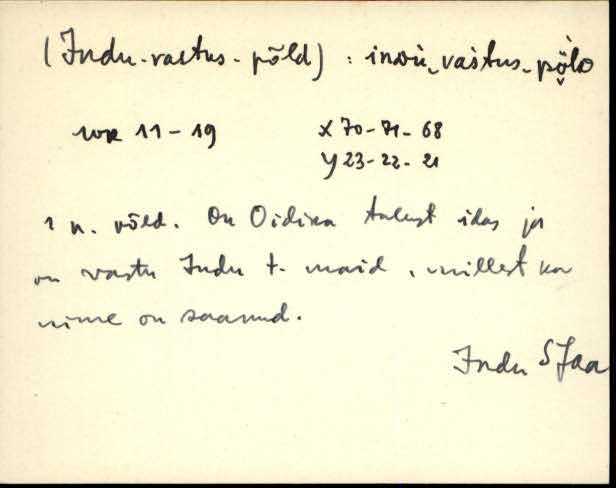 (Indu-vastus-põld) : inᴅù‿vas̀tus‿pə̭̀lᴅ
WR 11-19 X 70-71-68
Y 23-22-21
1 n. põld. On Oidika talust idas ja
on vastu Indu t. maid, millest ka
nime on saanud.
Indu S Jaa